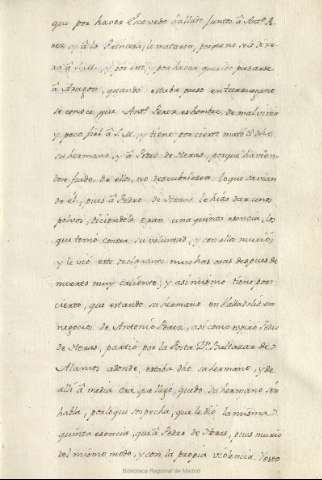 que por haver Escovedo hallado junto â Ant.º Pe-
rez, y â la Princesa, le mataron, porque no se
â S. M., y por esto, y por haver querido pasarse
â Aragon, quando estuvo preso en Turruegano
se conoce, que Ant.º Perez es hombre de mal vivir
y poco fiel â S. M., y tiene por cierto mató el dicho
su hermano, y â Pedro de Heras, porque havien-
dose fiado de ellos, no descubriesen lo que savian
de él, pues â Pedro de Heras le hizo dar unos
polvos, diciendole eran una quinta esencia, lo
que tomó contra su voluntad, y con ello murió,
y le vió este declarante muchas oras despues de
muerto muy caliente; y asi mismo tiene por
cierto, que estando su hermano en Valladolid en
negocios de Antonio Perez, asi como murió Pedro
de Heras, partió por la Posta D.n Baltazar de
Alamos adonde estaba dho su hermano, y de
alli â media ora que llegó, quedó su hermano sin
habla, por lo que sospecha, que le dió la misma
quinta esencia, que â Pedro de Heras, pues murió
del mismo modo, y con la propia violencia. Visto
Biblioteca Regional de Madrid